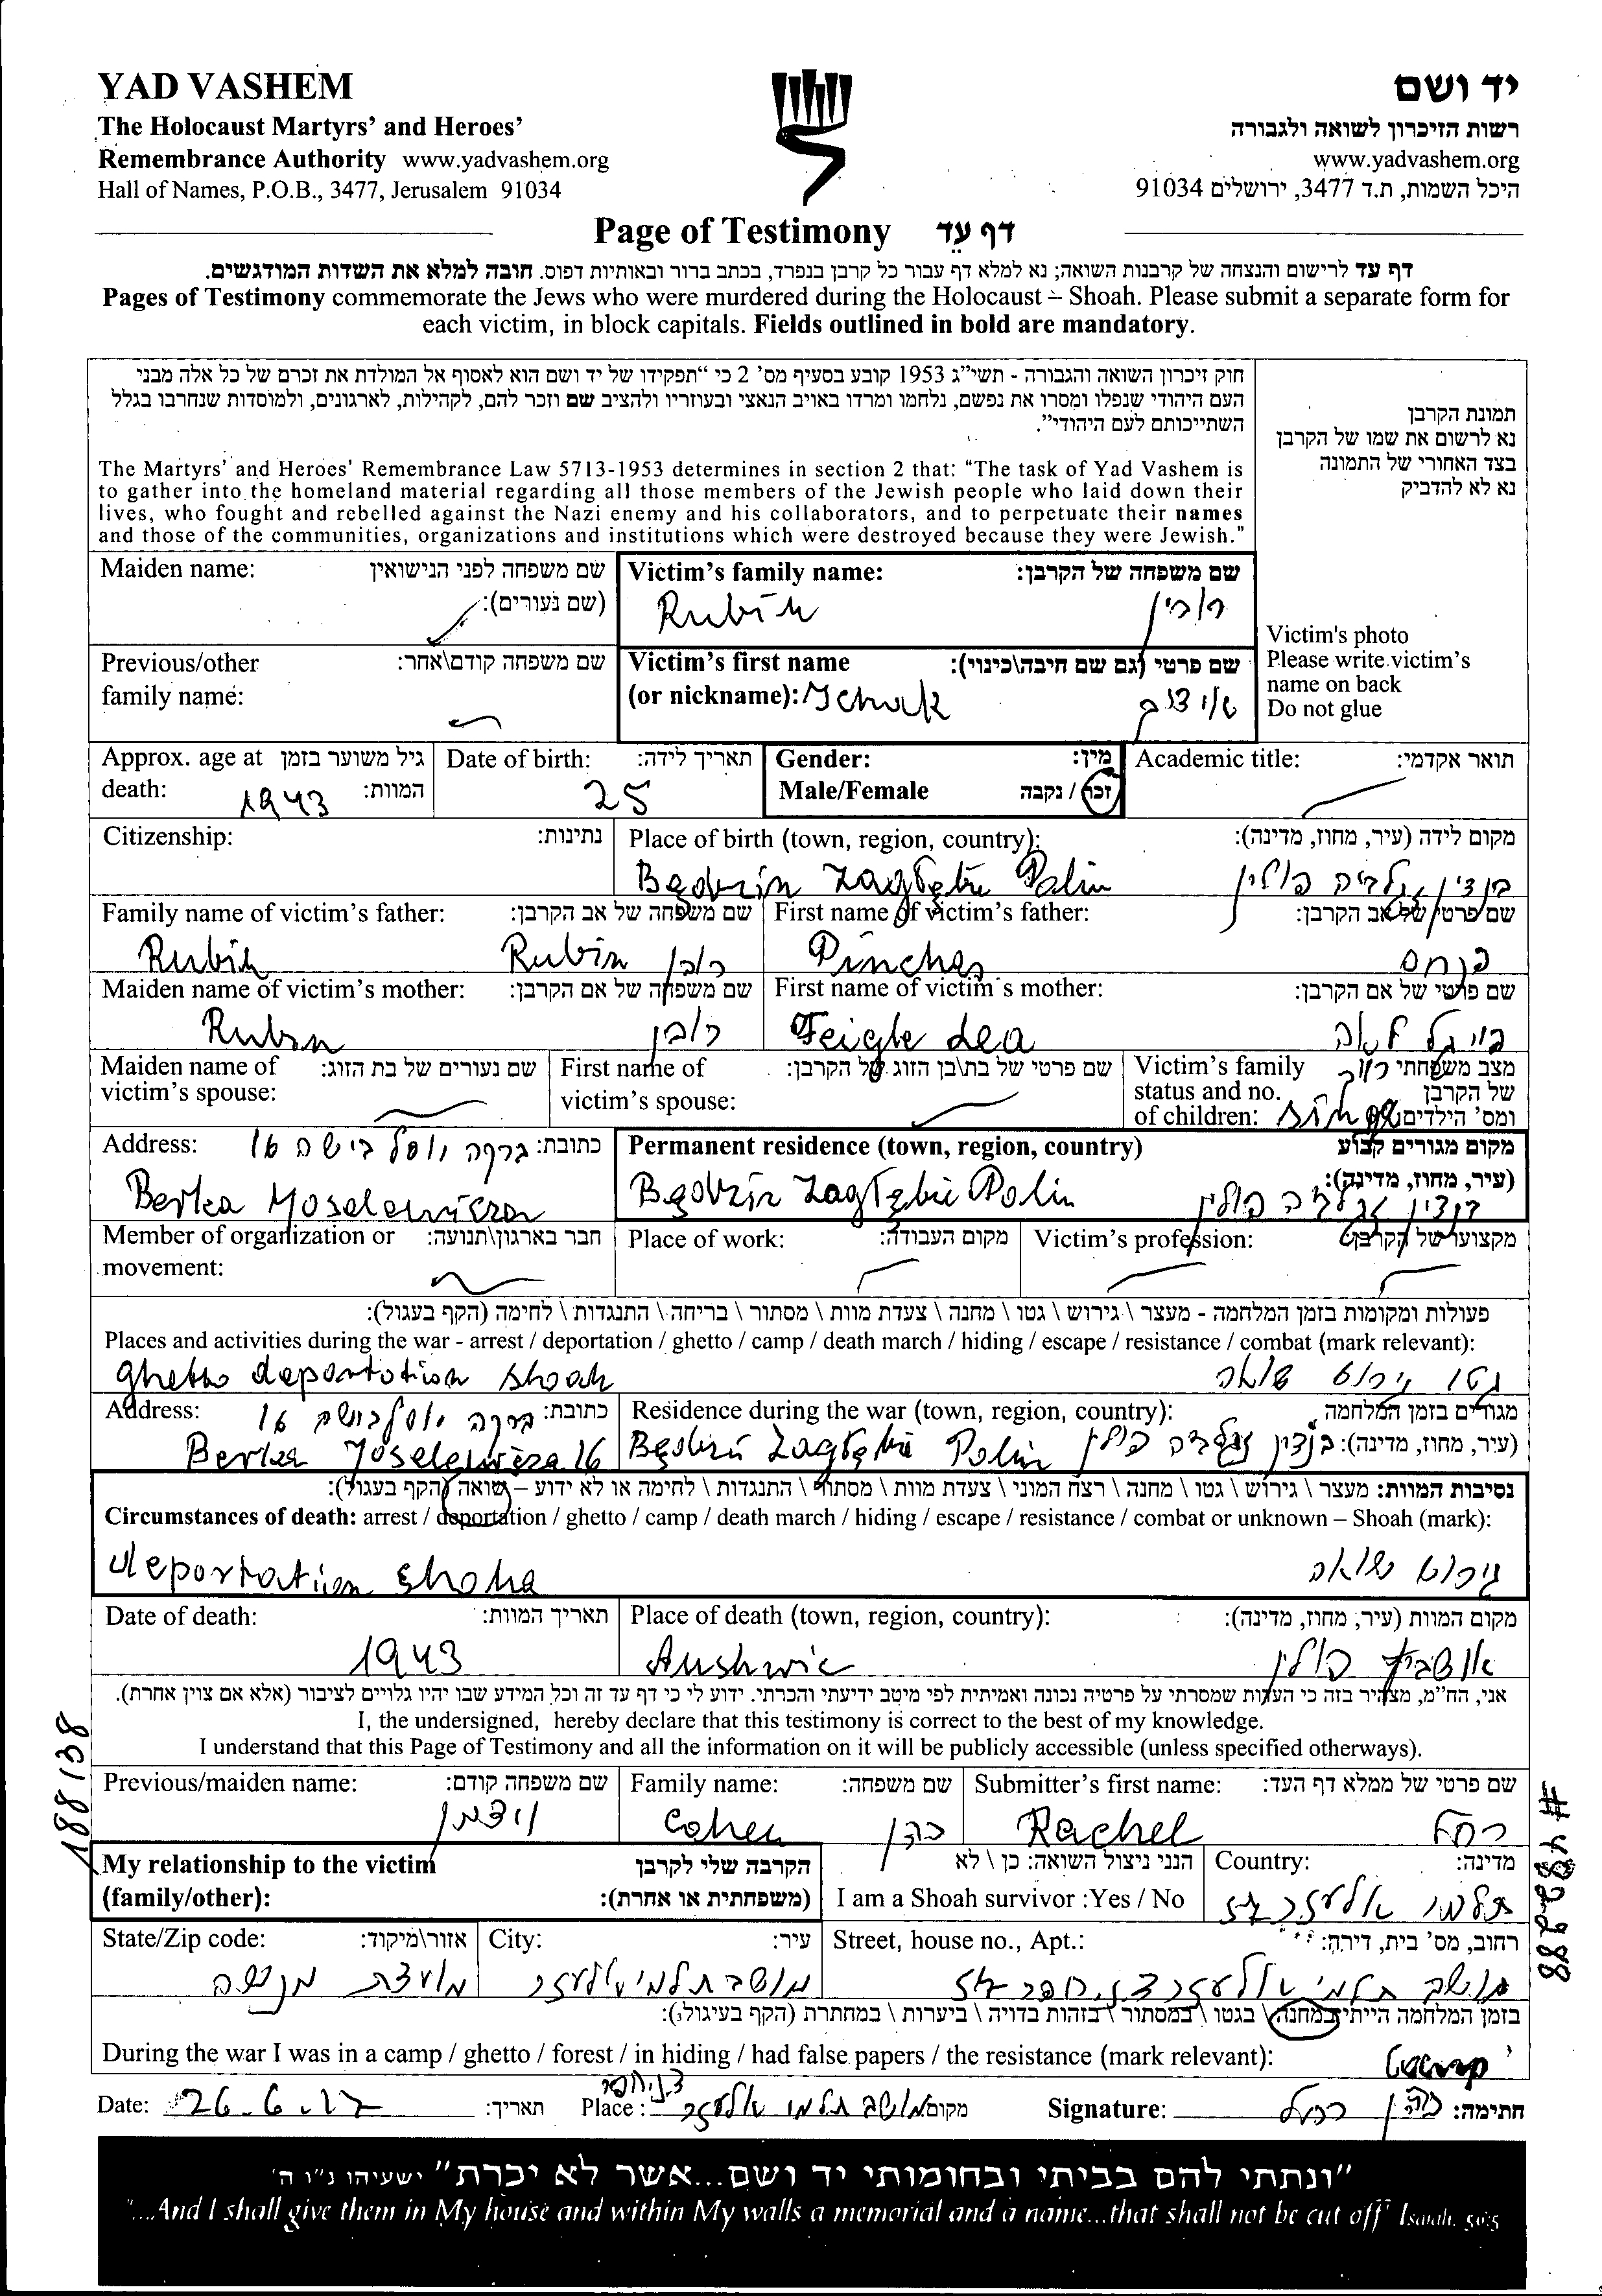 YAD VASHEM
The Holocaust Martyrs' and Heroes'
Remembrance Authority www.yadvashem.org
Hall of Names, P.O.B., 3477, Jerusalem 91034
יד ושם
רשות הזיכרון לשואה ולגבורה
www.yadvashem.org
היכל השמות, ת.ד 3477, ירושלים 91034
Page of Testimony דף עֵד
דף עד לרישום והנצחה של קרבנות השואה; נא למלא דף עבור כל קרבן בנפרד, בכתב ברור ובאותיות דפוס. חובה למלא את השדות המודגשים.
Pages of Testimony commemorate the Jews who were murdered during the Holocaust – Shoah. Please submit a separate form for
each victim, in block capitals. Fields outlined in bold are mandatory.
חוק זיכרון השואה והגבורה - תשי"ג 1953 קובע בסעיף מס' 2 כי "תפקידו של יד ושם הוא לאסוף אל המולדת את זכרם של כל אלה מבני
העם היהודי שנפלו ומסרו את נפשם, נלחמו ומרדו באויב הנאצי ובעוזריו ולהציב שם וזכר להם, לקהילות, לארגונים, ולמוסדות שנחרבו בגלל
השתייכותם לעם היהודי".
The Martyrs' and Heroes' Remembrance Law 5713-1953 determines in section 2 that: "The task of Yad Vashem is
to gather into the homeland material regarding all those members of the Jewish people who laid down their
lives, who fought and rebelled against the Nazi enemy and his collaborators, and to perpetuate their names
and those of the communities, organizations and institutions which were destroyed because they were Jewish."
תמונת הקרבן
נא לרשום את שמו של הקרבן
בצד האחורי של התמונה
נא לא להדביק
Victim's photo
Please write victim's
name on back
Do not glue
Maiden name: שם משפחה לפני הנישואין
(שם נעורים):
Victim's family name: שם משפחה של הקרבן:
Rubin רובין
Previous/other שם משפחה קודם\אחר:
family name:
Victim's first name שם פרטי (גם שם חיבה\כינוי):
(or nickname):
Approx. age at גיל משוער בזמן
death: 1943 המוות:
Date of birth: תאריך לידה:
25
Gender: מין:
Male/Female זכר / נקבה
Academic title: תואר אקדמי:
Citizenship: נתינות:
Place of birth (town, region, country): מקום לידה (עיר, מחוז, מדינה):
Będzin Zagłębie Polin בנדין זגלביה פולין
Family name of victim's father: שם משפחה של אב הקרבן:
Rubin Rubin רובין
First name of victim's father: שם פרטי של אב הקרבן:
Pinches פנחס
Maiden name of victim's mother: שם משפחה של אם הקרבן:
Rubin רובין
First name of victim's mother: שם פרטי של אם הקרבן:
Feigle Lea פייגל לאה
Maiden name of שם נעורים של בת הזוג:
victim's spouse:
First name of שם פרטי של בת\בן הזוג של הקרבן:
victim's spouse:
Victim's family מצב משפחתי רווק
status and no. של הקרבן
of children: ומס' הילדים:
Address: כתובת: ברקה יוסלבישה 16
Berka Joselewicza
Permanent residence (town, region, country) מקום מגורים קבוע
(עיר, מחוז, מדינה):
Będzin Zagłębie Polin בנדין זגלביה פולין
Member of organization or חבר בארגון\תנועה:
movement:
Place of work: מקום העבודה:
Victim's profession: מקצועו של הקרבן:
פעולות ומקומות בזמן המלחמה - מעצר \ גירוש \ גטו \ מחנה \ צעדת מוות \ מסתור \ בריחה \ התנגדות \ לחימה (הקף בעגול):
Places and activities during the war - arrest / deportation / ghetto / camp / death march / hiding / escape / resistance / combat (mark relevant):
ghetto deportation shoah גטו גירוש שואה
Address: כתובת: ברקה יוסלבישה 16
Berka Joselewicza 16
Residence during the war (town, region, country): מגורים בזמן המלחמה
(עיר, מחוז, מדינה): בנדין זגלביה פולין
Będzin Zagłębie Polin
נסיבות המוות: מעצר \ גירוש \ גטו \ מחנה \ רצח המוני \ צעדת מוות \ מסתור \ התנגדות \ לחימה או לא ידוע – שואה (הקף בעגול):
Circumstances of death: arrest / deportation / ghetto / camp / death march / hiding / escape / resistance / combat or unknown – Shoah (mark):
deportation shoha גירוש שואה
Date of death: תאריך המוות:
1943
Place of death (town, region, country): מקום המוות (עיר, מחוז, מדינה):
Aushwic אושביץ פולין
אני, הח"מ, מצהיר בזה כי העדות שמסרתי על פרטיה נכונה ואמיתית לפי מיטב ידיעתי והכרתי. ידוע לי כי דף עד זה וכל המידע שבו יהיו גלויים לציבור (אלא אם צוין אחרת).
I, the undersigned, hereby declare that this testimony is correct to the best of my knowledge.
I understand that this Page of Testimony and all the information on it will be publicly accessible (unless specified otherways).
188138
#482288
Previous/maiden name: שם משפחה קודם:
ויצמן
Family name: שם משפחה:
Cohen כהן
Submitter's first name: שם פרטי של ממלא דף העד:
Rachel רחל
My relationship to the victim הקרבה שלי לקרבן
(family/other): (משפחתית או אחרת):
הנני ניצול השואה: כן \ לא
I am a Shoah survivor :Yes / No
Country: מדינה:
תלמי אלעזר
State/Zip code: אזור\מיקוד:
מועצת מנשה
City: עיר:
מושב תלמי אלעזר
Street, house no., Apt.: רחוב, מס' בית, דירה:
מושב תלמי אלעזר
בזמן המלחמה הייתי: במחנה \ בגטו \ במסתור \ בזהות בדויה \ ביערות \ במחתרת (הקף בעיגול):
During the war I was in a camp / ghetto / forest / in hiding / had false papers / the resistance (mark relevant):
camp
Date: 26.6.12 תאריך:
Place : מושב תלמי אלעזר מקום:
Signature: כהן רחל חתימה:
"ונתתי להם בביתי ובחומותי יד ושם...אשר לא יכרת" ישעיהו נ"ו ה'
"...And I shall give them in My house and within My walls a memorial and a name...that shall not be cut off" Isaiah. 56:5